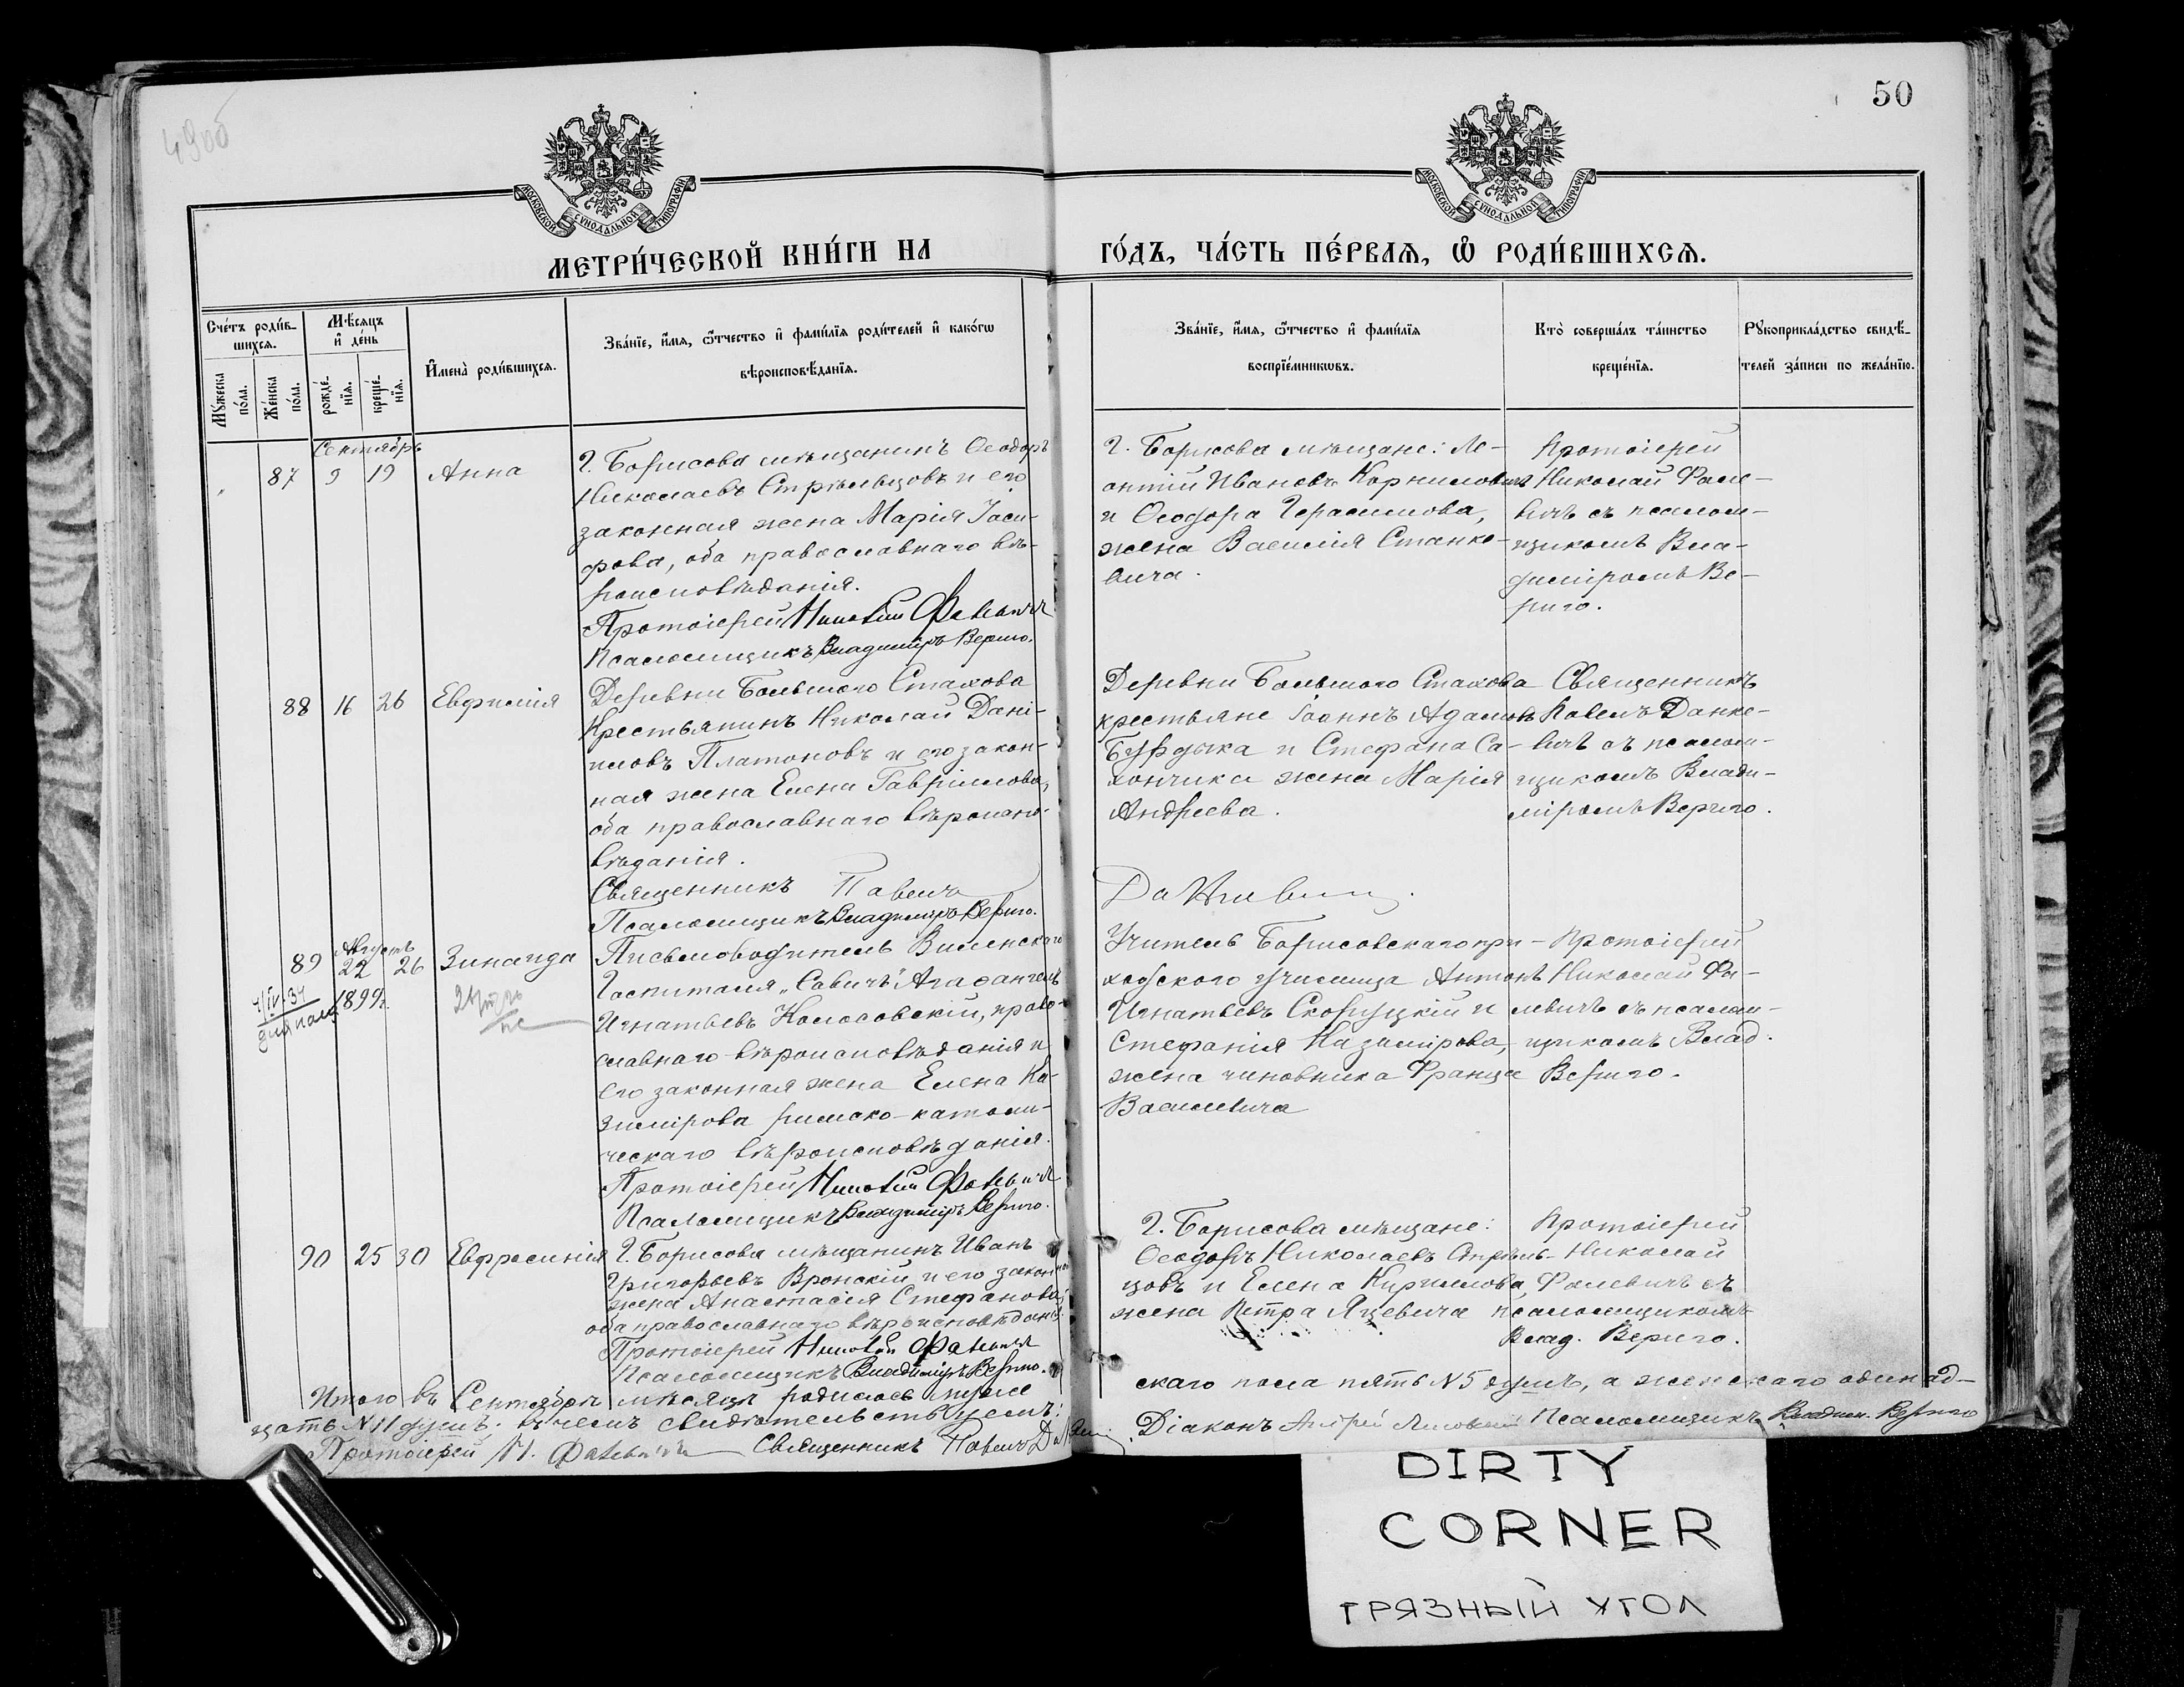 49об
50
МОСКОВСКОЙ СѴНОДАЛЬНОЙ ТИПОГРАФІИ
МОСКОВСКОЙ СѴНОДАЛЬНОЙ ТИПОГРАФІИ
МЕТРИ́ЧЕСКОЙ КНИ́ГИ НА
ГО́ДЪ, ЧА́СТЬ ПЕ́РВАЯ, Ѽ РОДИ́ВШИХСЯ.
Сче́тъ роди́в-
шихся.
Мꙋ́жеска
по́ла.
Же́нска
по́ла.
Мѣ́сяцъ
и҆ де́нь
рожде́-
нїя.
креще́-
нїя.
И҆мена̀ роди́вшихся.
Зва́нїе, и҆́мя, ѻ҆́тчество и҆ фами́лїя роди́телей и҆ како́гѡ
вѣроисповѣ́данїя.
Зва́нїе, и҆́мя, ѻ҆́тчество и҆ фами́лїя
воспрїе́мникѡвъ.
Кто̀ соверша́лъ та́инство
креще́нїя.
Рꙋкоприкла́дство свидѣ́-
телей за́писи по жела́нїю.
Сентябрь
87 9 19 Анна
Г. Борисова мѣщанинъ Ѳеодоръ
Николаевъ Стрѣльцовъ и его
законная жена Марія Іоси-
фова, оба православнаго вѣ-
роисповѣданія.
Протоіерей Николай Фалевичъ
Псаломщикъ Владиміръ Вериго.
Г. Борисова мѣщане: Ле-
онтій Ивановъ Корниловичъ
и Ѳеодора Герасимова,
жена Василія Станке-
вича.
Протоіерей
Николай Фале-
вичъ съ псалом-
щикомъ Вла-
диміромъ Ве-
риго.
88 16 26 Евфимія
Деревни Большого Стахова
крестьянинъ Николай Дані-
иловъ Платоновъ и его закон-
ная жена Елена Гавріилова,
оба православнаго вѣроиспо-
вѣданія.
Священникъ Павелъ
Псаломщикъ Владиміръ Вериго.
Деревни Большого Стахова
крестьяне Іоаннъ Адамовъ
Бурдыка и Стефана Са-
хончика жена Марія
Андреева.
Священникъ
Павелъ Данке-
вичъ съ псалом-
щикомъ Влади-
міромъ Вериго.
Данкевичъ.
Августъ
89 22 26 Зинаида
1899 г.
4/IV-34
Письмоводитель Виленскаго
Госпиталя „Савичъ“ Агаѳангелъ
Игнатьевъ Колосовскій, право-
славнаго вѣроисповѣданія и
его законная жена Елена Ка-
зимірова римско-католи-
ческаго вѣроисповѣданія.
Протоіерей Николай Фалевичъ
Псаломщикъ Владиміръ Вериго.
Учитель Борисовскаго при-
ходского училища Антонъ
Игнатьевъ Скоруцкій и
Стефанія Казимірова,
жена чиновника Франца
Василевича
Протоіерей
Николай Фа-
левичъ съ псалом-
щикомъ Влад.
Вериго.
90 25 30 Евфросинія
Г. Борисова мѣщанинъ Иванъ
Григорьевъ Вронскій и его законная
жена Анастасія Стефанова,
оба православнаго вѣроисповѣданія.
Протоіерей Николай Фалевичъ
Псаломщикъ Владиміръ Вериго.
Г. Борисова мѣщане:
Ѳеодоръ Николаевъ Стрѣль-
цовъ и Елена Кириллова,
жена Петра Яцевича
Протоіерей
Николай
Фалевичъ съ
псаломщикомъ
Влад. Вериго.
Итого въ Сентябрѣ мѣсяцѣ родилось муже
скаго пола пять N5 душъ, а женскаго одинад-
цать N11 душъ, въ чемъ свидѣтельствуемъ:
Протоіерей Н. Фалевичъ Священникъ Павелъ Данкевичъ
Діаконъ Андрей Псаломщикъ Владим. Вериго
DIRTY
CORNER
ГРЯЗНЫЙ УГОЛ